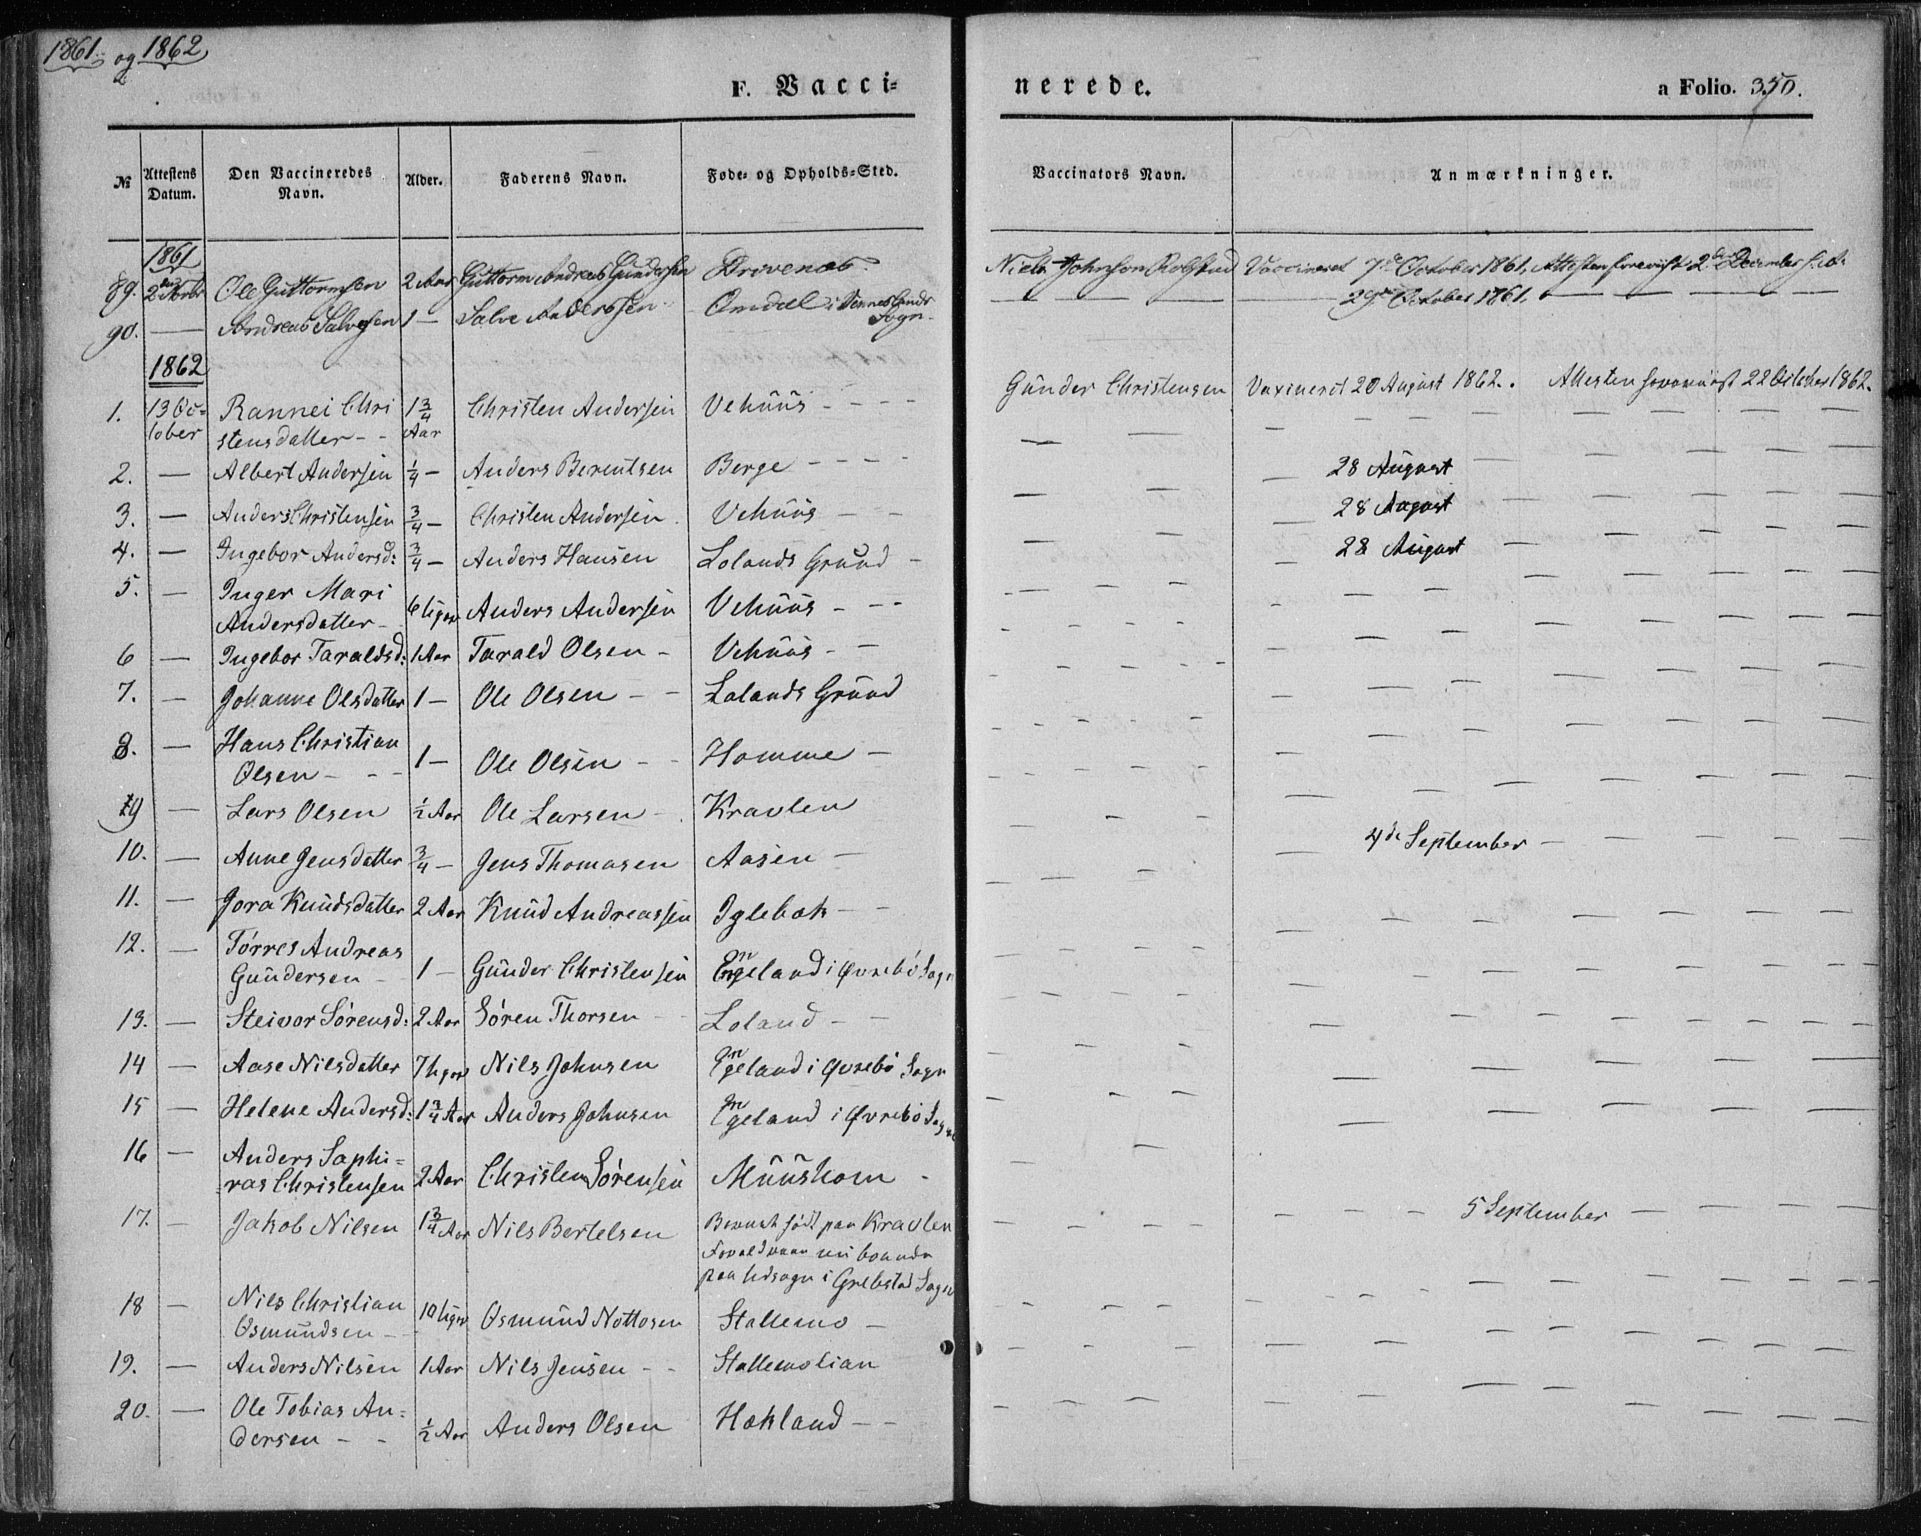 1861 og 1862
F. Vacci-
nerede.
a Folio. 350.
№ Attestens Datum. Den Vaccineredes Navn. Alder. Faderens Navn. Føde- og Opholds-Sted. Vaccinators Navn. Anmærkninger.
1861
89. Ole Guttormsen 2 Aar Guttorm Andreas Gundersen Drivenæs. Niels Johnson Vaccineret 7de October 1861, Attesten forevist 2den December s. A.
90. — Andreas Salvesen 1 — Salve Anderssen — Omdal i Sogn. — — 29de October 1861. — —
1862
1. 13 October Rannei Christensdatter - - 1 3/4 Aar Christen Andersen Vehuus - - - - Gunder Christensen Vaxineret 20 August 1862. Attesten forevist 22 October 1862.
2. — Albert Andersen 1/4 — Anders Berentsen Berge - - - - — — — — —
3. — Anders Christensen 3/4 — Christen Andersen Vehuus — — — 28 August — — —
4. — Ingebor Andersd: 3/4 — Anders Hansen Lolands Grund - — — 28 August — — —
28 August — — —
5. — Inger Mari Andersdatter - 6 Uger Anders Andersen Vehuus - - -
6 — Ingebor Taraldsd: 1 Aar Tarald Olsen - Vehuus - -
7. — Johanne Olsdatter 1 — Ole Olsen — — Lolands Grund
8. — Hans Christian Olsen - - - 1 — Ole Olsen - - Homme -
9 — Lars Olsen 1/2 Aar Ole Larsen - Kravlen
10. — Anne Jensdatter 3/4 — Jens Thomasen Aasen — 4de September —
11. — Jora Knudsdatter 2 Aar Knud Andreassen Iglebæk - -
12. — Tørres Andreas Gundersen - 1 — Gunder Christensen Engeland i Øvrebø Sogn
13. — Steivor Sørensd: 2 Aar Søren Thorsen - - Loland - -
14 — Aase Nilsdatter 7 Uger Nils Johnsen Engeland i Øvrebø Sogn
15 — Helene Andersd: 1 3/4 Aar Anders Johnsen Engeland i Øvrebø Sogn
16 — Anders Saphi=
=ras Christensen 2 Aar Christen Sørensen Muushom -
17. — Jakob Nilsen 1 3/4 Aar Nils Bertelsen født paa Kravlen 5 September —
nu boende
paa i Grebstad Sogn
18 — Nils Christian
Osmundsen — - 10 Uger Osmund Nottosen Stallemo —
19. — Anders Nilsen 1 Aar Nils Jensen - - Stallemolian
20. — Ole Tobias An-
dersen - - 1/2 Aar Anders Olsen Hækland - -